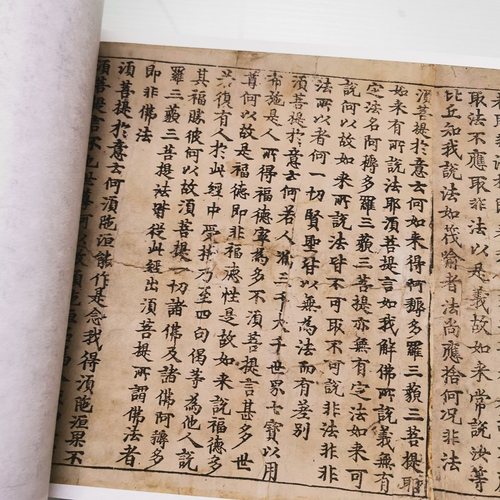 取法不應取非法以是義故如來常說汝等
比丘知我說法如筏喻者法尚應捨何況非法
須菩提於意云何如來得阿耨多羅三藐三菩提耶
如來有所說法耶須菩提言如我解佛所說義無有
定法名阿耨多羅三藐三菩提亦無有定法如來可
說何以故如來所說法皆不可取不可說非法非非
法所以者何一切賢聖皆以無為法而有差別
須菩提於意云何若人滿三千大千世界七寶以用
布施是人所得福德寧為多不須菩提言甚多世
尊何以故是福德即非福德性是故如來說福德多
若復有人於此經中受持乃至四句偈等為他人說
其福勝彼何以故須菩提一切諸佛及諸佛阿耨多
羅三藐三菩提法皆從此經出須菩提所謂佛法者
即非佛法
須菩提於意云何須陀洹能作是念我得須陀洹果不
須菩提言不也世尊何以故須陀洹